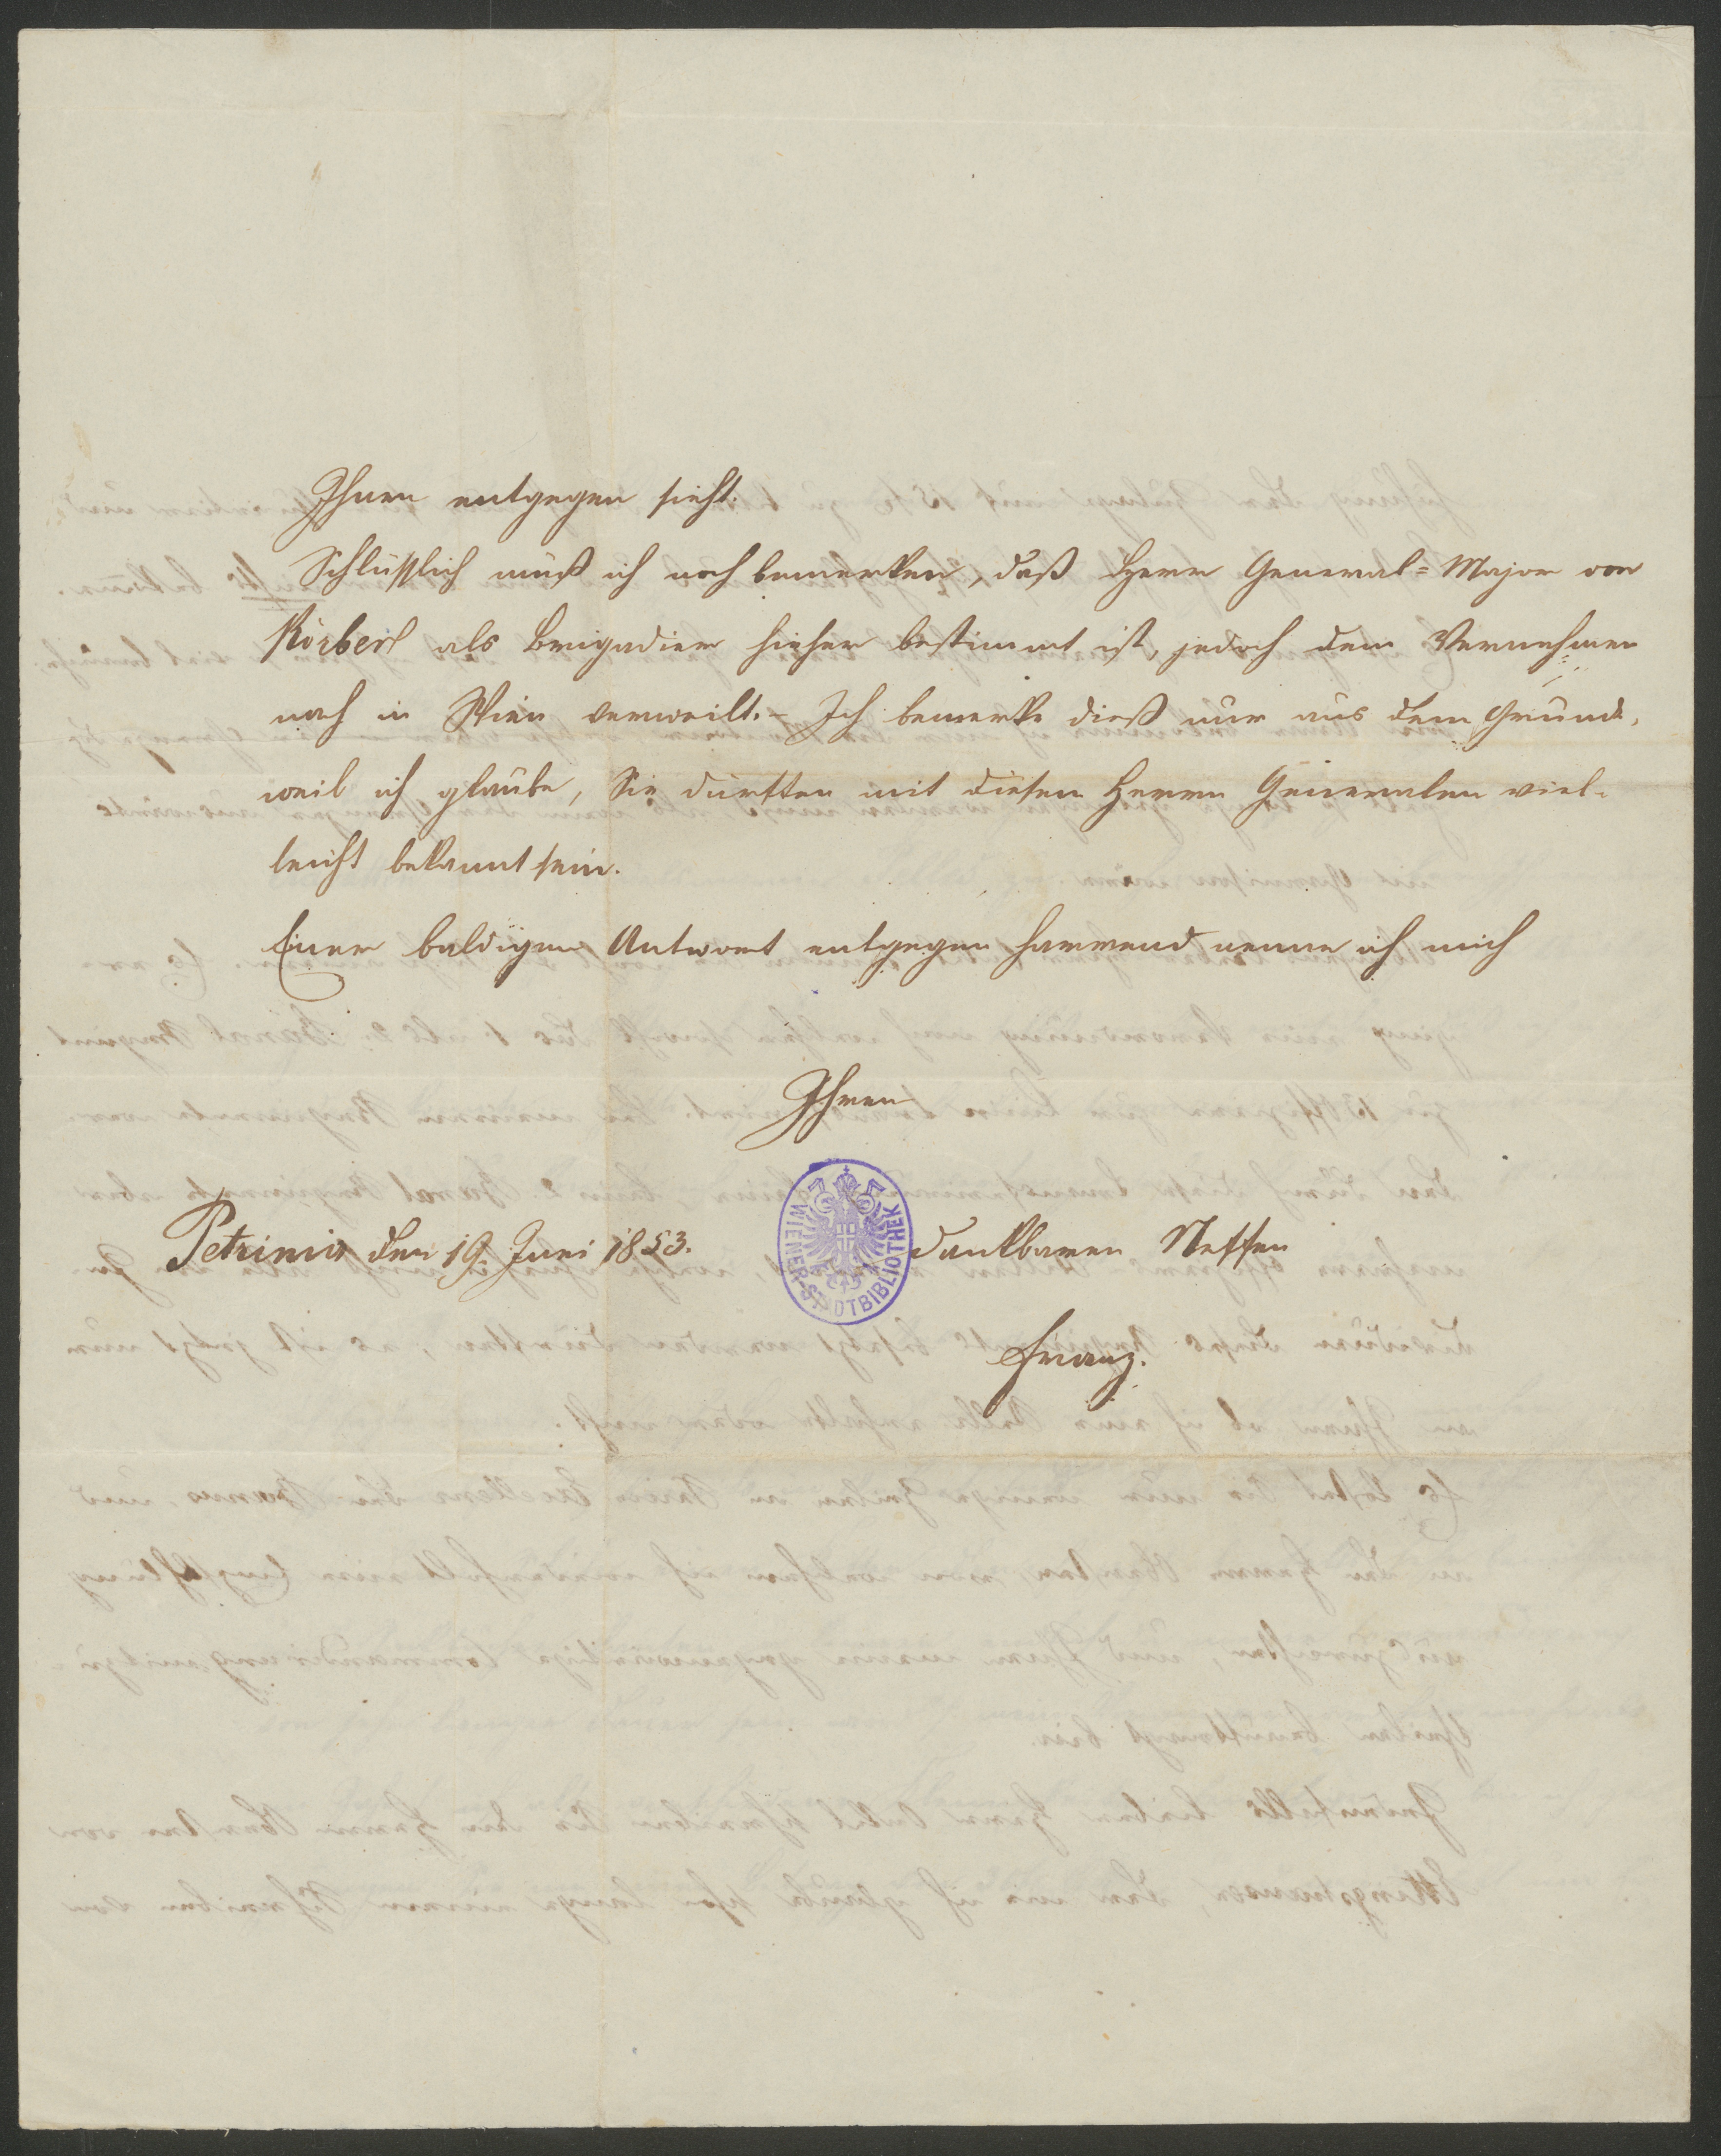 Ihnen entgegen sieht.
Schlüsslich muß ich noch bemerken, daß Herr General=Major von
Körber als Brigadier hieher bestimmt ist, jedoch dem Vernehmen
noch in Wien verweilt. – Ich bemerke dieß nur aus dem Grunde,
weil ich glaube, Sie dürften mit diesen Herrn Generalen viel-
leicht bekannt sein.
Einer baldigen Antwort entgegen harrend nenne ich mich
Ihren
Petrinia den 19. Juni 1853.
dankbaren Neffen
WIENER-STADTBIBLIOTHEK
Franz.